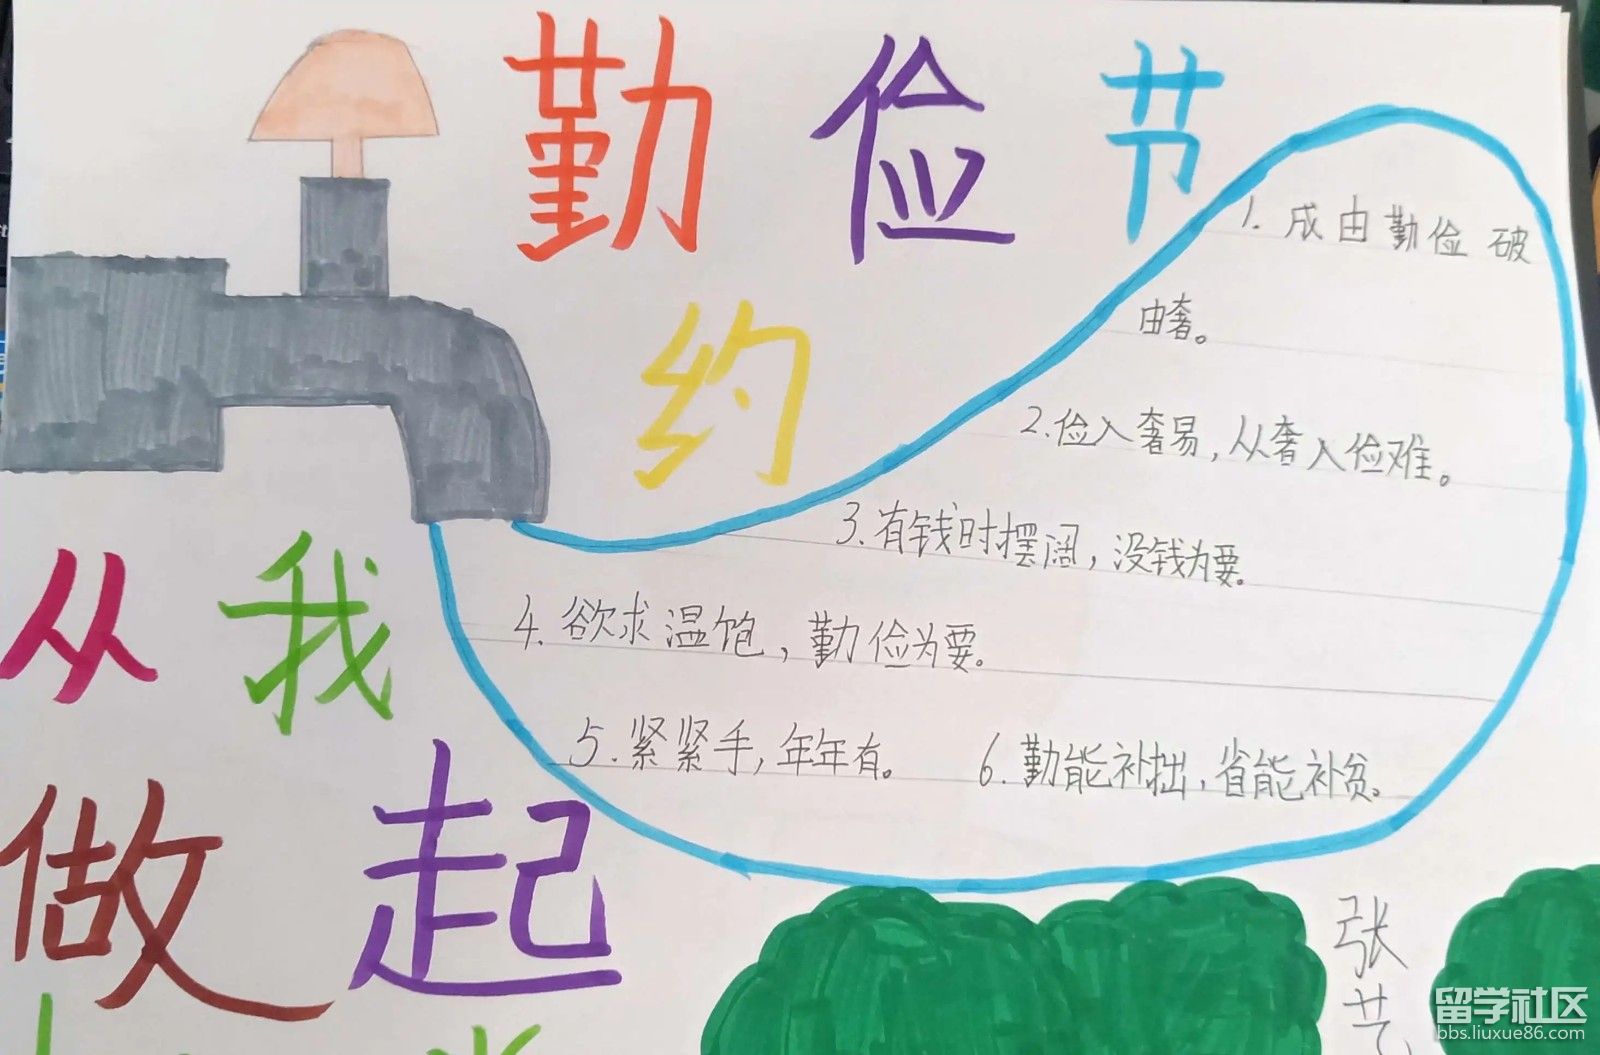 勤俭节
约
从我
做起
1.成由勤俭破
由奢。
2.俭入奢易,从奢入俭难。
3.有钱时摆阔,没钱为要。
4.欲求温饱,勤俭为要。
5.紧紧手,年年有。 6.勤能补拙,省能补贫。
张
艺
留学社区
bbs.liuxue86.com